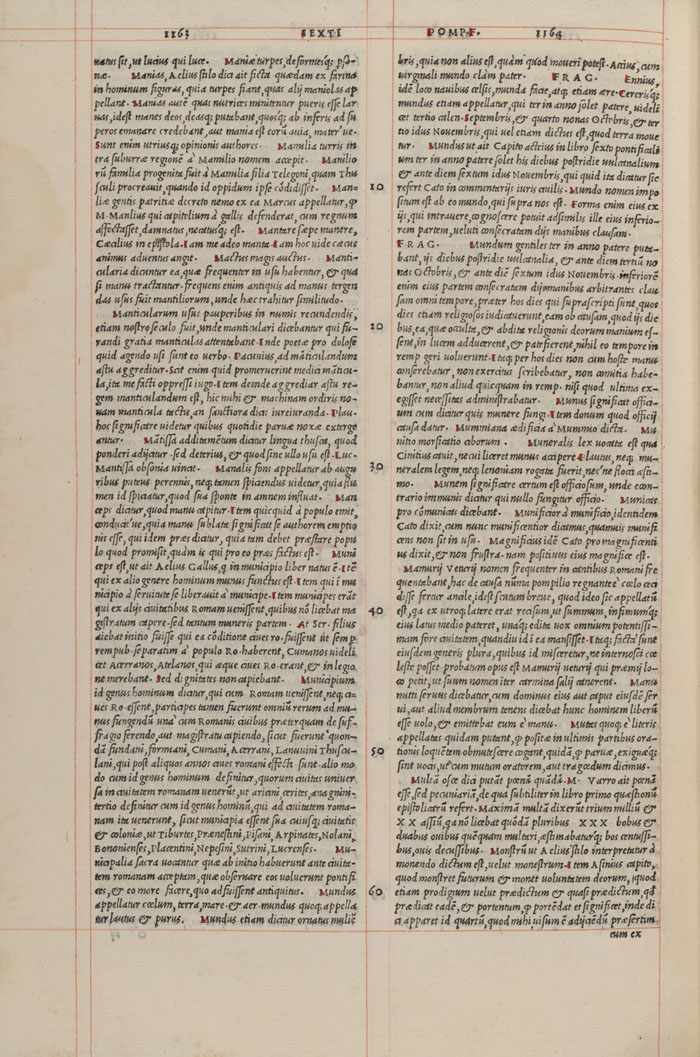 1163 SEXTI
natus sit, ut lucius qui luce. Maniæ turpes, deformesq; pso-
næ. Manias, Aelius stilo dicit ficta quædam ex farina
in hominum figuras, quia turpes fiant, quas alij maniolas ap
pellant. Manias autē quas nutrices minitentur pueris esse lar
uas, idest manes deos, deasq; putabant, quosq; ab inferis ad su
peros emanare credebant, aut mania est eorū auia, mater'ue.
Sunt enim utriusq; opinionis authores. Mamilia turris in
tra suburræ regionē a Mamilio nomen accepit. Manilio
rū familia progenita fuit à Mamilia filia Telegoni, quam Thu
sculi procreauit, quando id oppidum ipse cōdidisset. Man-
liæ gentis patritiæ decreto nemo ex ea Marcus appellatur, ꝙ
M. Manlius qui capitolium à gallis defenderat, cum regnum
affectasset, damnatus, necatusq; est. Mantare sæpe manere,
Cæcilius in epistola. Iam me adeo manta. Iam hoc uide cæcus
animus aduentus angit. Mactus magis auctus. Manti-
cularia dicuntur ea, quæ frequenter in usu habentur, & qua
si manu tractantur. frequens enim antiquis ad manus tergen
das usus fuit mantiliorum, unde hæc trahitur similitudo.
Manticularum usus pauperibus in numis recundendis,
etiam nostro sęculo fuit, unde manticulari dicebantur qui fu-
randi gratia manticulas attentabant. Inde poetæ pro dolose
quid agendo usi sunt eo uerbo. Pacuuius, ad māticulandum
astu aggreditur. Scit enim quid promeruerint
la, ita me facti oppressi iugo. Item deinde aggrediar astu re-
gem manticulandum est, hic nihi & machinam ordiris no-
uam manticula tactu, an sanctiora dicis iureiuranda. Plau.
hoc significare uidetur quibus quotidie paruæ noxæ exterge
antur. Mātissa additamētum dicitur lingua thusca, quod
ponderi adijcitur. sed deterius, & quod sine ullo usu est. Luc.
Mantissa obsonia uincit. Manalis fons appellatur ab augu
ribus puteus perennis, neq; tamen spiciendus uidetur, quia flu
men id spiciatur, quod sua sponte in amnem influat. Man
ceps dicitur, quod manu capitur. Item quicquid à populo emit,
conducit'ue, quia manu sublata significat se authorem emptio
nis esse, qui idem præs dicitur, quia tam debet præstare popu
lo quod promisit, quàm is qui pro eo præs factus est. Muni
ceps est, ut ait Aelius Gallus, q̃ in municipio liber natus ē. Itē
qui ex alio genere hominum munus functus est. Item qui ī mu
nicipio à seruitute se liberauit à municipe. Item municipes erāt
qui ex alijs ciuitatibus Romam uenissent, quibus nō licebat ma
gistratum capere. sed tantum muneris partem. At Ser. filius
aiebat initio fuisse qui ea cōditione ciues ro. fuissent ut semp
rempub. separatim à populo Ro. haberent, Cumanos uideli
cet Acerranos, Atelanos, qui æque ciues Ro. erant, & in legio
ne merebant. Sed dignitates non capiebant. Municipium
id genus hominum dicitur, qui cum Romam uenissent, neq; ci-
ues Ro. essent, participes tamen fuerunt omniū rerum ad mu-
nus fungendū unà cum Romanis ciuibus præterquam de suf-
fragio ferendo, aut magistratu capiendo, sicut fuerūt quon-
dā fundani, formiani, Cumani, Acerrani, Lanuuini Thuscu-
lani, qui post aliquos annos ciues romani effecti sunt. alio mo
do cum id genus hominum definitur, quorum ciuitas uniuer
sa in ciuitatem romanam uenerūt, ut ariani, cerites, anagnini.
tertio definitur cum id genus hominū, qui ad ciuitatem roma-
nam ita uenerunt, sicut municipia essent sua cuiusq; ciuitatis
& coloniæ, ut Tiburtes, Prænestini, Pisani, Arpinates, Nolani,
Bononienses, Placentini, Nepesini, Sutrini, Lucrenses. Mu-
nicipalia sacra uocantur quæ ab initio habuerunt ante ciuita-
tem romanam acceptam, quæ obseruare eos uoluerunt pontifi
ces, & eo more facere, quo adfuissent antiquitus. Mundus
appellatur cœlum, terra, mare. & aer. mundus quoq; appella
tur lautus & purus. Mundus etiam dicitur ornatus mulie
10
20
30
40
50
60
POMP. F. 1164
bris, quia non alius est, quàm quod moueri potest. Accius, cum
uirginali mundo clàm pater. FRAG. Ennius,
idē loca nauibus celsis, munda facie, atq; etiam ære. Cererisq;
mundus etiam appellatur, qui ter in anno solet patere, uideli
cet tertio calen. Septembris, & quarto nonas Octobris, & ter
tio idus Nouembris, qui uel etiam dictus est, quod terra moue
tur. Mundus ut ait Capito acteius in libro sexto pontificali
um ter in anno patere solet his diebus postridie uulcanalium
& ante diem sextum idus Nouembris, qui quid ita dicatur sic
refert Cato in commentarijs iuris ciuilis. Mundo nomen impo
situm est ab eo mundo, qui supra nos est. Forma enim eius ex
ijs, qui intrauere, cognoscere potuit adsimilis ille eius inferio-
rem partem, ueluti consecratam dijs manibus clausam.
FRAG. Mundum gentiles ter in anno patere puta-
bant, ijs diebus postridie uulcanalia, & ante diem tertiū no
nas Octobris, & ante diē sextum idus Nouembris. inferiorē
enim eius partem consecratam dijmanibus arbitrantes clau
sam omni tempore, præter hos dies qui supra scripti sunt, quos
dies etiam religiosos iudicauerunt, eam ob causam, quod ijs die
bus, ea, quæ occulta, & abdita religionis deorum manium es-
sent, in lucem adducerent, & patefierent, nihil eo tempore in
remp. geri uoluerunt. Itaq; per hos dies non cum hoste manus
conserebatur, non exercitus scribebatur, non comitia habe-
bantur, non aliud quicquam in remp. nisi quod ultima ex-
egisset necessitas administrabatur. Munus significat offici-
um cum dicatur quis munere fungi. Item donum quod officij
causa datur. Mummiana ædificia à Mummio dicta. Mu
nitio morsicatio ciborum. Muneralis lex uocata est qua
Cintius cauit, ne cui liceret munus accipere. Plautus, neq; mu-
neralem legem, neq; lenoniam rogata fuerit, nec'ne flocci æsti-
mo. Munem significare certum est officiosum, unde con-
trario immunis dicitur qui nullo fungitur officio. Municas
pro cōmunicas dicebant. Munificior à munifico, identidem
Cato dixit, cum nunc munificentior dicamus, quamuis munifi
cens non sit in usu. Magnificius idē Cato pro magnificenti
us dixit, & non frustra. nam positiuus eius magnificæ est.
Mamurij Veturij nomen frequenter in cantibus Romani fre
quentabant, hac de causa numa pompilio regnante ē cœlo ceci
disse fertur ancile, idest scutum breue, quod ideo sic appellatū
est, ꝗa ex utroq; latere erat recisum, ut summum, infimumq;
eius latus medio pateret, unaq; edita uox omnium potentissi-
mam fore ciuitatem, quandiu id ī ea mansisset. Itaq; facta sunt
eiusdem generis plura, quibus id misceretur, ne internosci cœ
leste posset. probatum opus est Mamurij ueturij qui præmij lo-
co petit, ut suum nomen iter carmina salij canerent. Manu
mitti seruus dicebatur, cum dominus eius aut caput eiusdē ser
ui, aut aliud membrum tenens dicebat hunc hominem liberū
esse uolo, & emittebat eum ē manu. Mutas quoq; è literis
appellatas quidam putant, ꝙ positæ in ultimis partibus ora-
tionis loquētem obmutescere cogent, quidā, ꝙ paruæ, exiguæq;
sint uocis, ut cum mutum oratorem, aut tragœdum dicimus.
Multā osce dici putāt pœnā quādā. M. Varro ait pœnā
esse, sed pecuniariā, de qua subtiliter in libro primo quæstionū
epistolicarū refert. Maximā multā dixerūt trium milliū &
XX assiū, ꝗa nō licebat quōdā pluribus XXX bobus &
duabus ouibus quēquam multari, æstimabaturq; bos centussi-
bus, ouis decussibus. Monstrū ut Aelius stilo interpretatur à
monendo dictum est, uelut monestrum. Item Asinius capito,
quod monstret futurum & monet uoluntatem deorum, iquod
etiam prodigium uelut prædictum & quasi prædictum, qđ
prædicat eadē, & portentum, ꝙ portēdat et significet, inde di
ci apparet id quartū, quod mihi uisum ē adijciēdū præsertim
cum ex